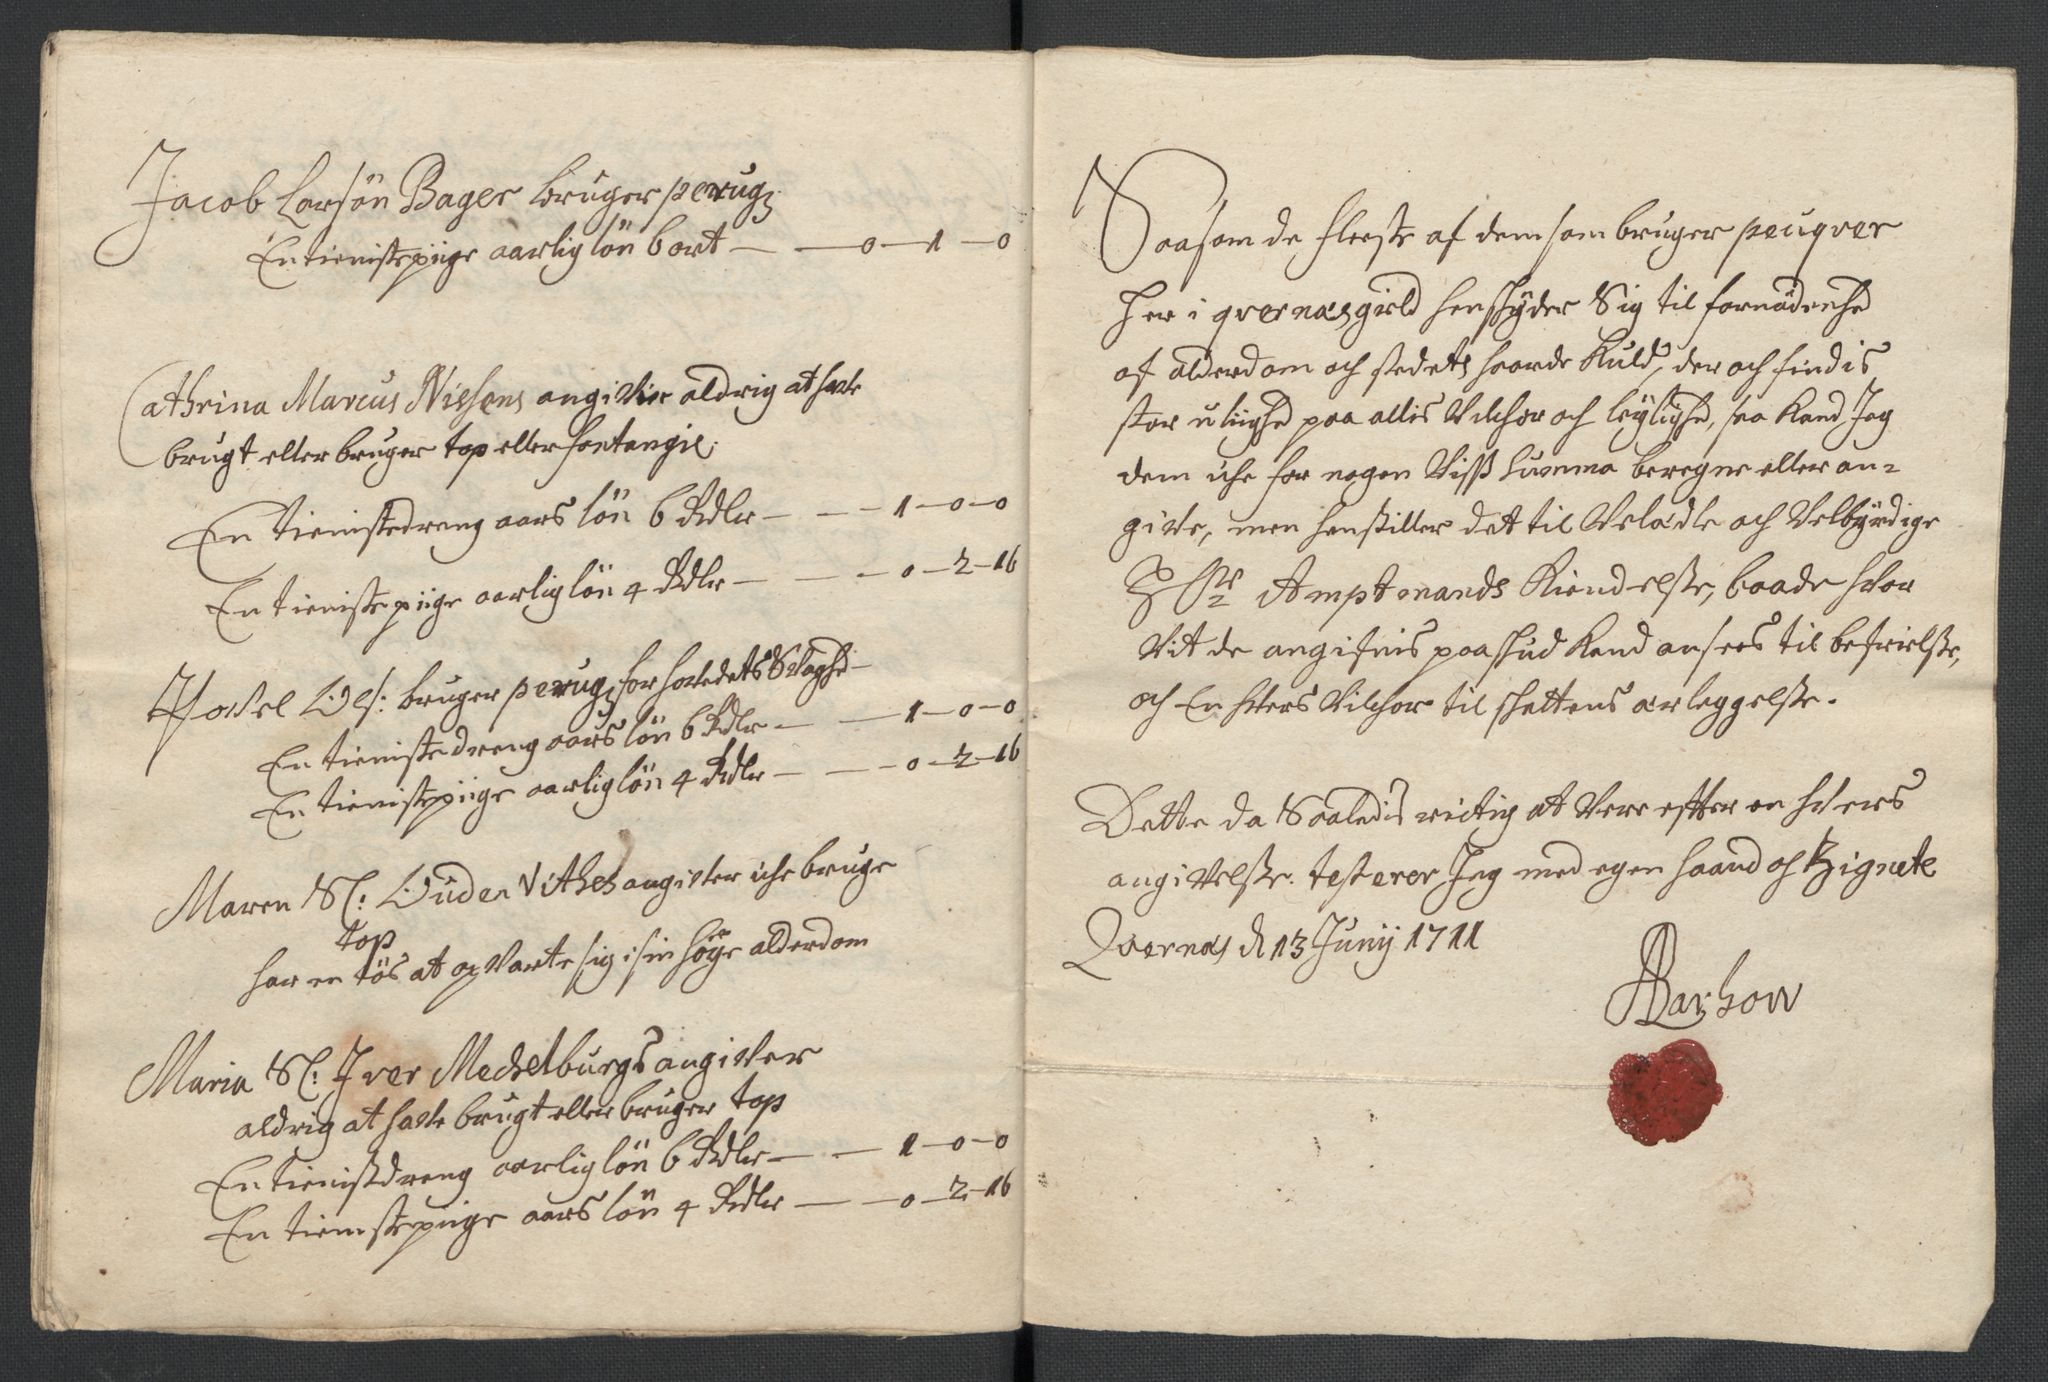 Jacob Larsön Bager bruger perug;
En tieniste piige aarlig lön 6 ort — — 0 — 1 — 0
Cathrina Marcus Nielsens angiver aldrig at hafve
brugt eller bruger top eller fontangie.
En tienistedreng aars lön 6 Rdlr — — — 1 — 0 — 0
En tieniste piige aarlig lön 4 Rdlr — — — 0 — 2 — 16
Povel Ols: bruger perug; for hovedets Svaghed —
En tienistedreng aars lön 6 Rdlr — — 1 — 0 — 0
En tieniste piige aarlig lön 4 Rdlr — — — 0 — 2 — 16
Maren Sl: angiver iche bruge
top
har en tös at opvarte sig i sin höye alderdom
Maria Sl: Iver Mechelburgs angiver
aldrig at hafve brugt eller bruger top
En tienistdreng aarlig lön 6 Rdlr — — 1 — 0 — 0
En tieniste piige aars lön 4 Rdlr — — 0 — 2 — 16
Saasom de fleeste af dem som bruger peuqver
her i qvernæs gield henskyder Sig til fornödenhed
af alderdom och stedets haarde Kuld, der och findis
stor uliighed paa allis Vilchor och leylighed, saa Kand Jeg
dem iche for nogen Viss Summa beregne eller an=
give, men henstiller det til Velædle och Velbyrdige
Hr Amptmands Kiendelsse, baade hvor
Vit de angifnis paaskud Kand ansees til befrielsse,
och En hvers Vilchor til skattens ærleggelsse.
Dette da Saaledis rictig at Vere effter en hvers
angivelsse. testerer Jeg med egen haand och Zignete
Qvernæs d 13 Junij 1711